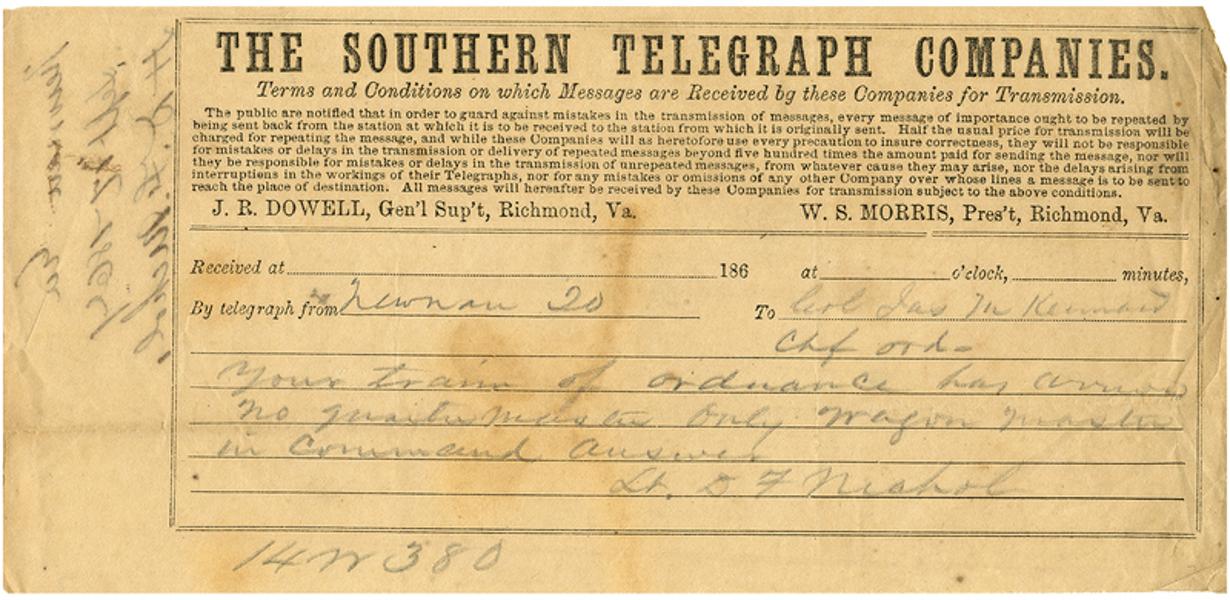 THE SOUTHERN TELEGRAPH COMPANIES.
Terms and Conditions on which Messages are Received by these Companies for Transmission.
The public are notified that in order to guard against mistakes in the transmission of messages, every message of importance ought to be repeated by
being sent back from the station at which it is to be received to the station from which it is originally sent. Half the usual price for transmission will be
charged for repeating the message, and while these Companies will as heretofore use every precaution to insure correctness, they will not be responsible
for mistakes or delays in the transmission or delivery of repeated messages beyond five hundred times the amount paid for sending the message, nor will
they be responsible for mistakes or delays in the transmission of unrepeated messages, from whatever cause they may arise, nor the delays arising from
interruptions in the workings of their Telegraphs, nor for any mistakes or omissions of any other Company over whose lines a message is to be sent to
reach the place of destination. All messages will hereafter be received by these Companies for transmission subject to the above conditions.
J. R. DOWELL, Gen'l Sup't, Richmond, Va. W. S. MORRIS, Pres't, Richmond, Va.
Received at 186 at o'clock, minutes,
By telegraph from Newnan 20 To Col Jas M Kennard
Chf ord-
Your train of ordnance has arrived
No quarter master Only Wagon Master
in Command Answer
Lt. D F Nichol
14 W 380